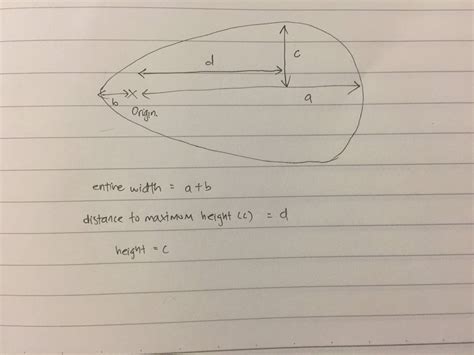 c
d
a
b
Origin.
entire width = a+b
distance to maximum height (c) = d
height = c